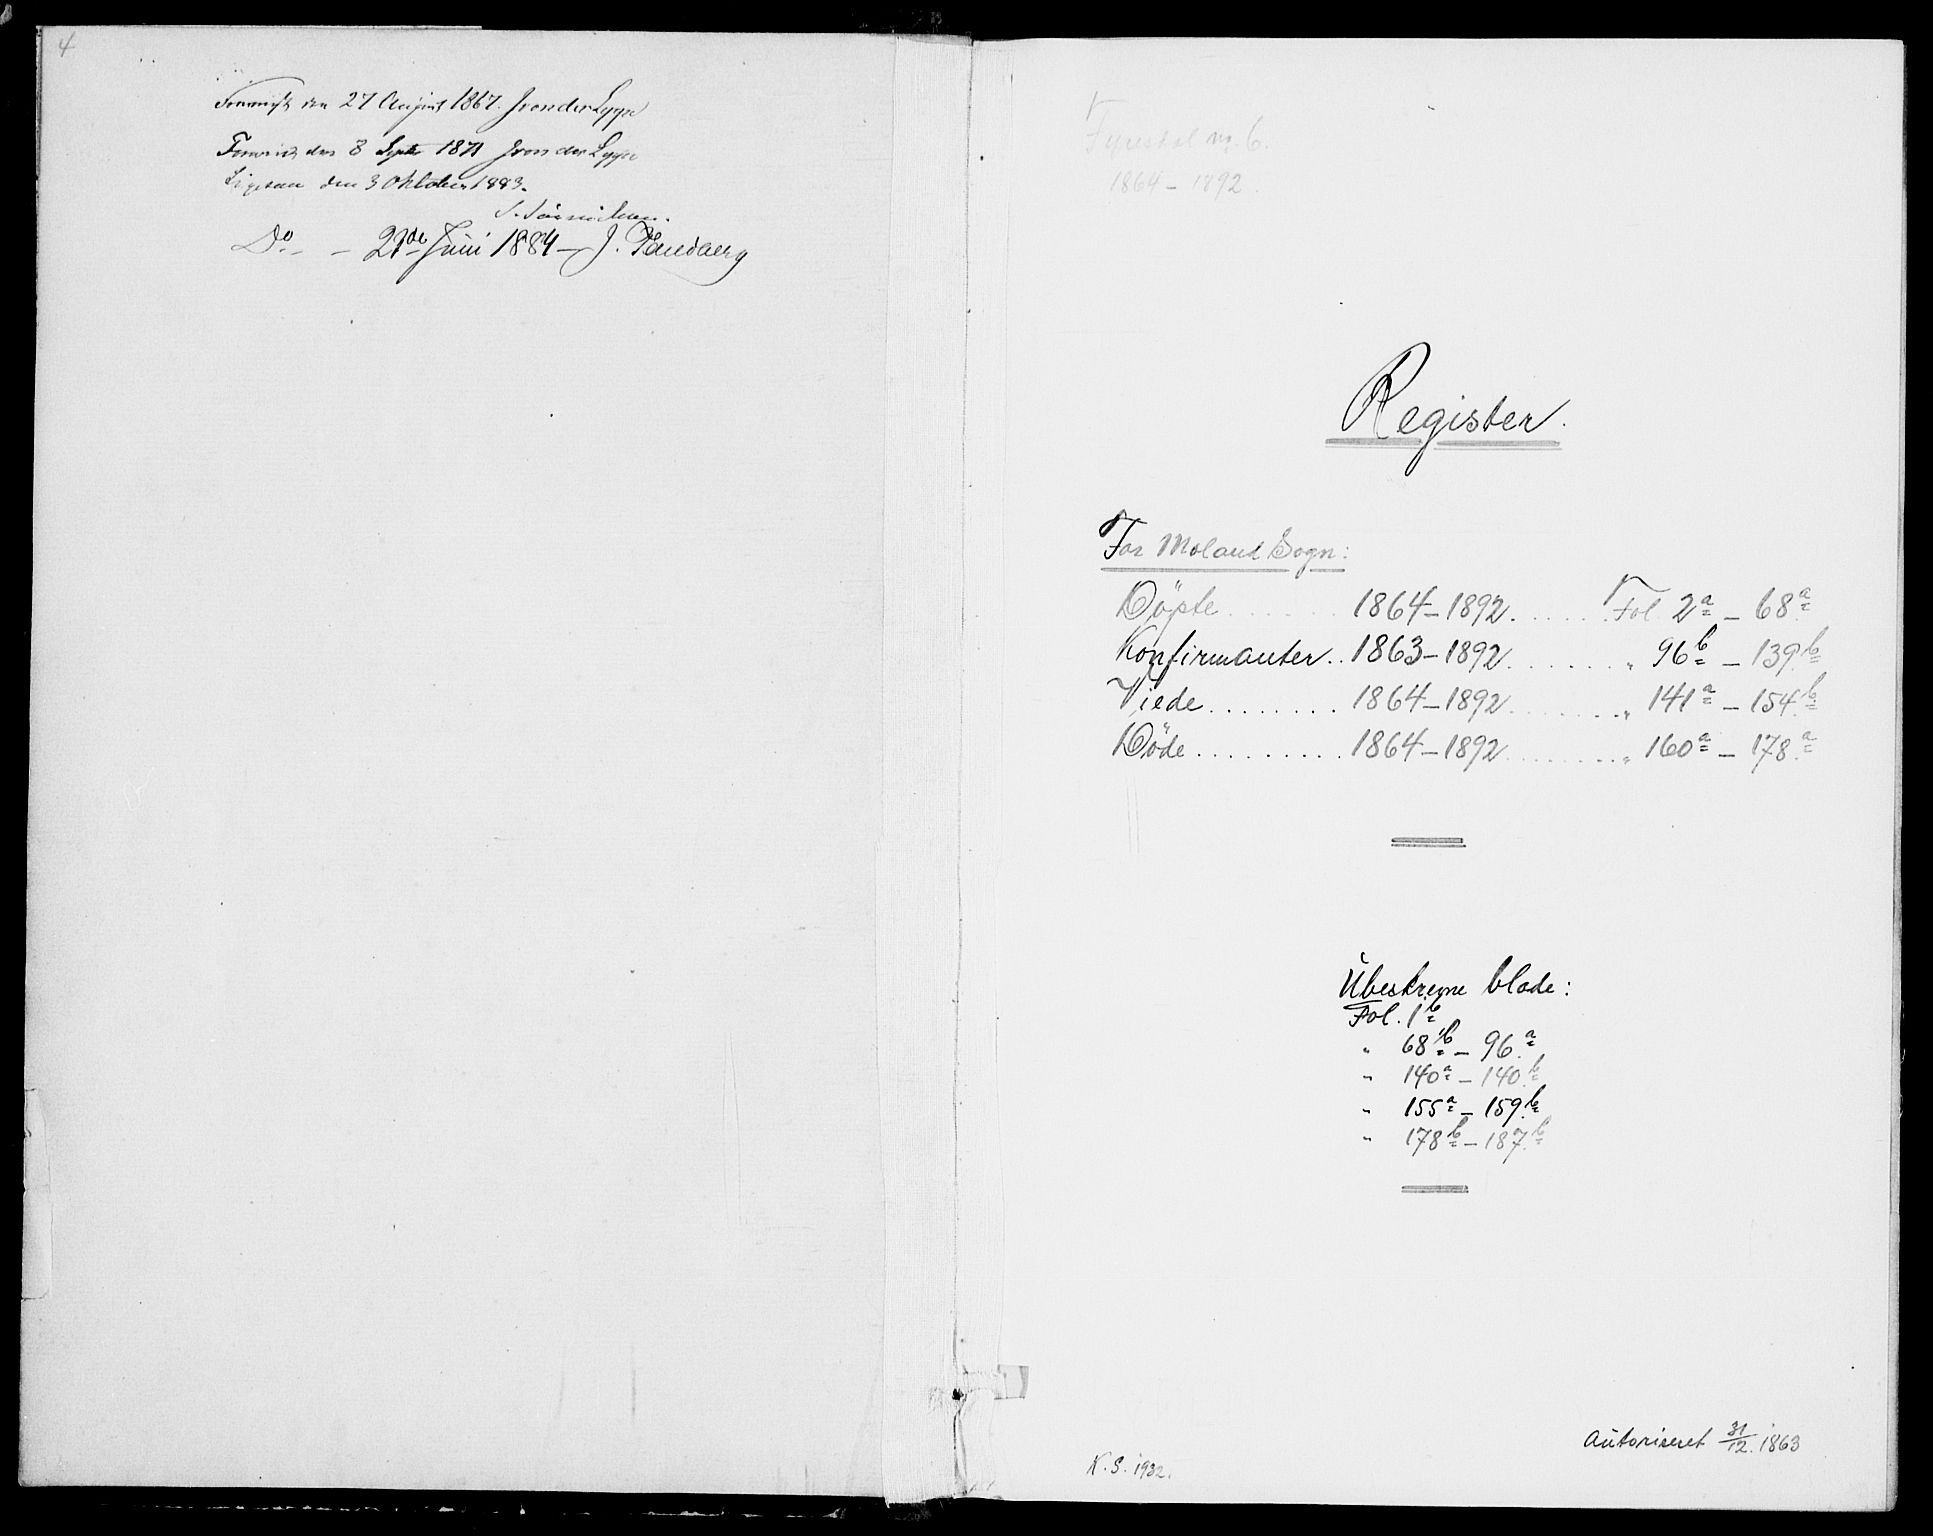 4
den 27 August 1867. J von der Lippe
den 8 Septr 1871 J von der Lippe
Ligesaa den 3 Oktober 1883.
Do. - - 21de Juni 1884 - J.
Fyresdal no. 6.
1864 - 1892.
Register.
For Moland Sogn:
Döpte . . . . . . 1864 - 1892. . . . . . Fol. 2a - 68a
Konfirmanter . . 1863 - 1892. . . . . . . „ 96b - 139b
Viede . . . . . . . . 1864 - 1892. . . . . . . „ 141a - 154b
Döde . . . . . . . . . 1864 - 1892. . . . . . . „ 160a - 178a
Ubeskrevne blade:
Fol. 1b
„ 68b - 96a
„ 140a - 140b
„ 155a - 159b
„ 178b - 187b
Autoriseret 31/12. 1863
K. S. 1932.